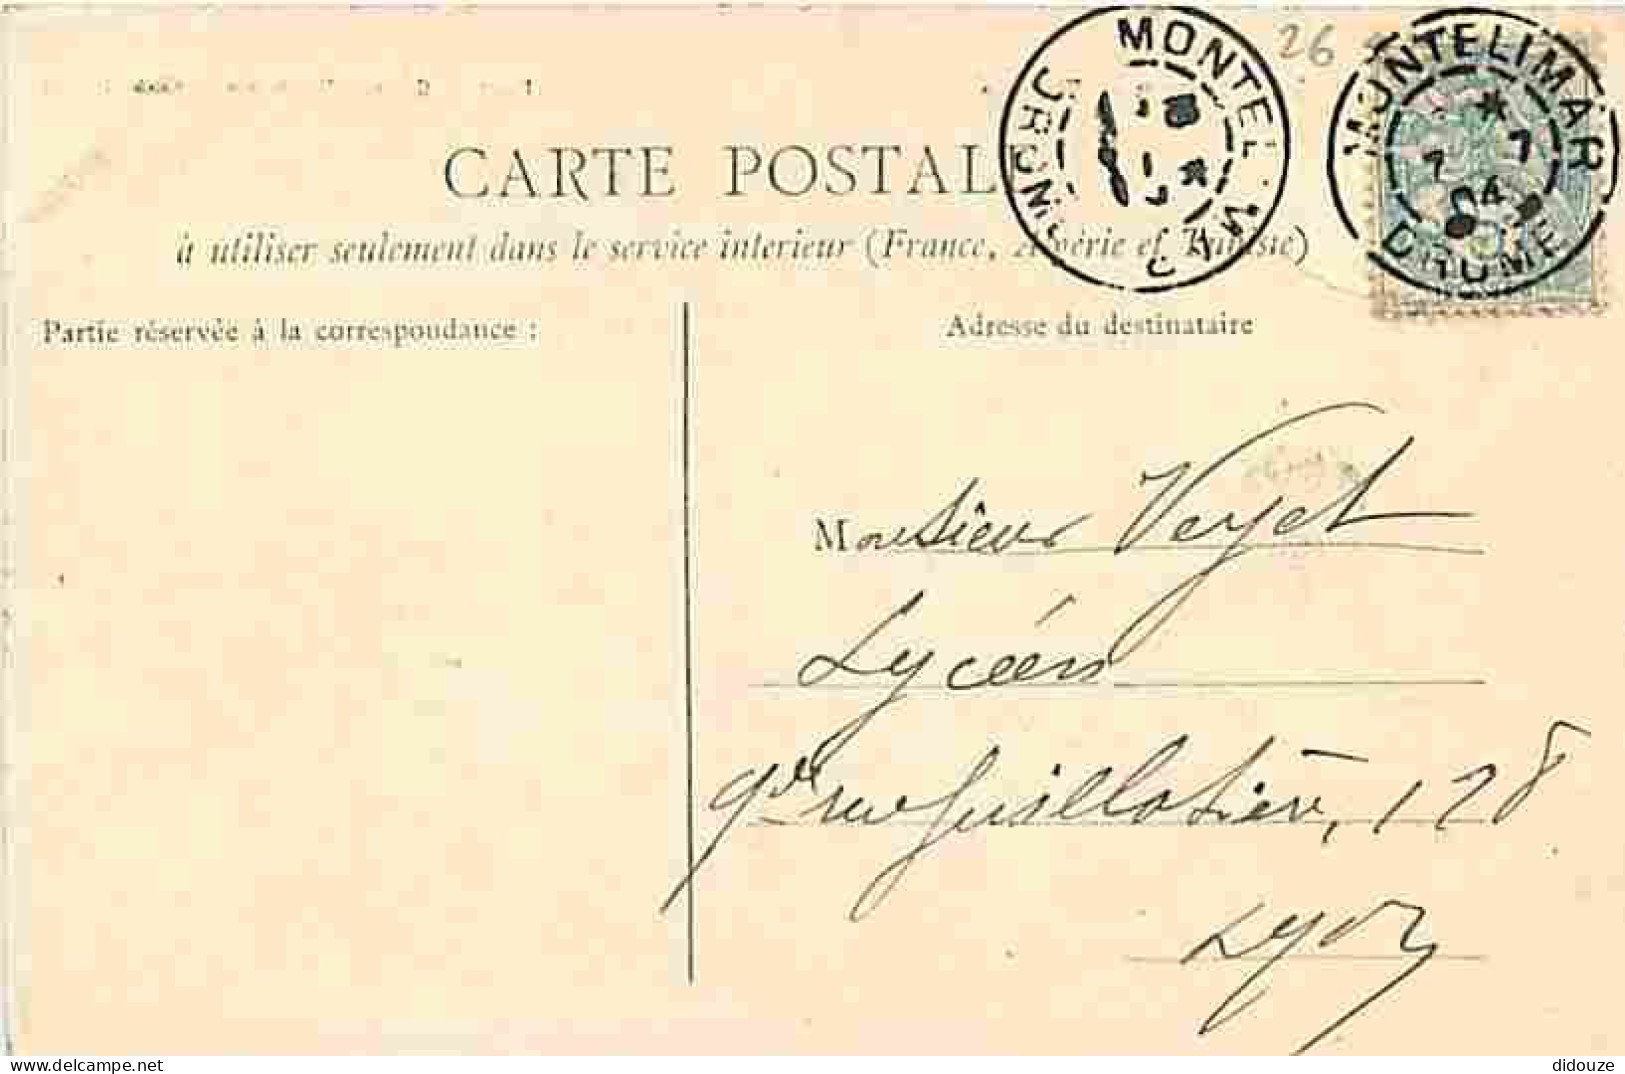 26
MONTELIMAR
DROME
MONTELIMAR
* 7
7
04
DROME
CARTE POSTALE
à utiliser seulement dans le service interieur (France, Algérie et Tunisie)
Partie réservée à la correspondance :
Adresse du destinataire
Monsieur Veyet
Lycéen
gde rue Guillotière, 128
Lyon
didouze